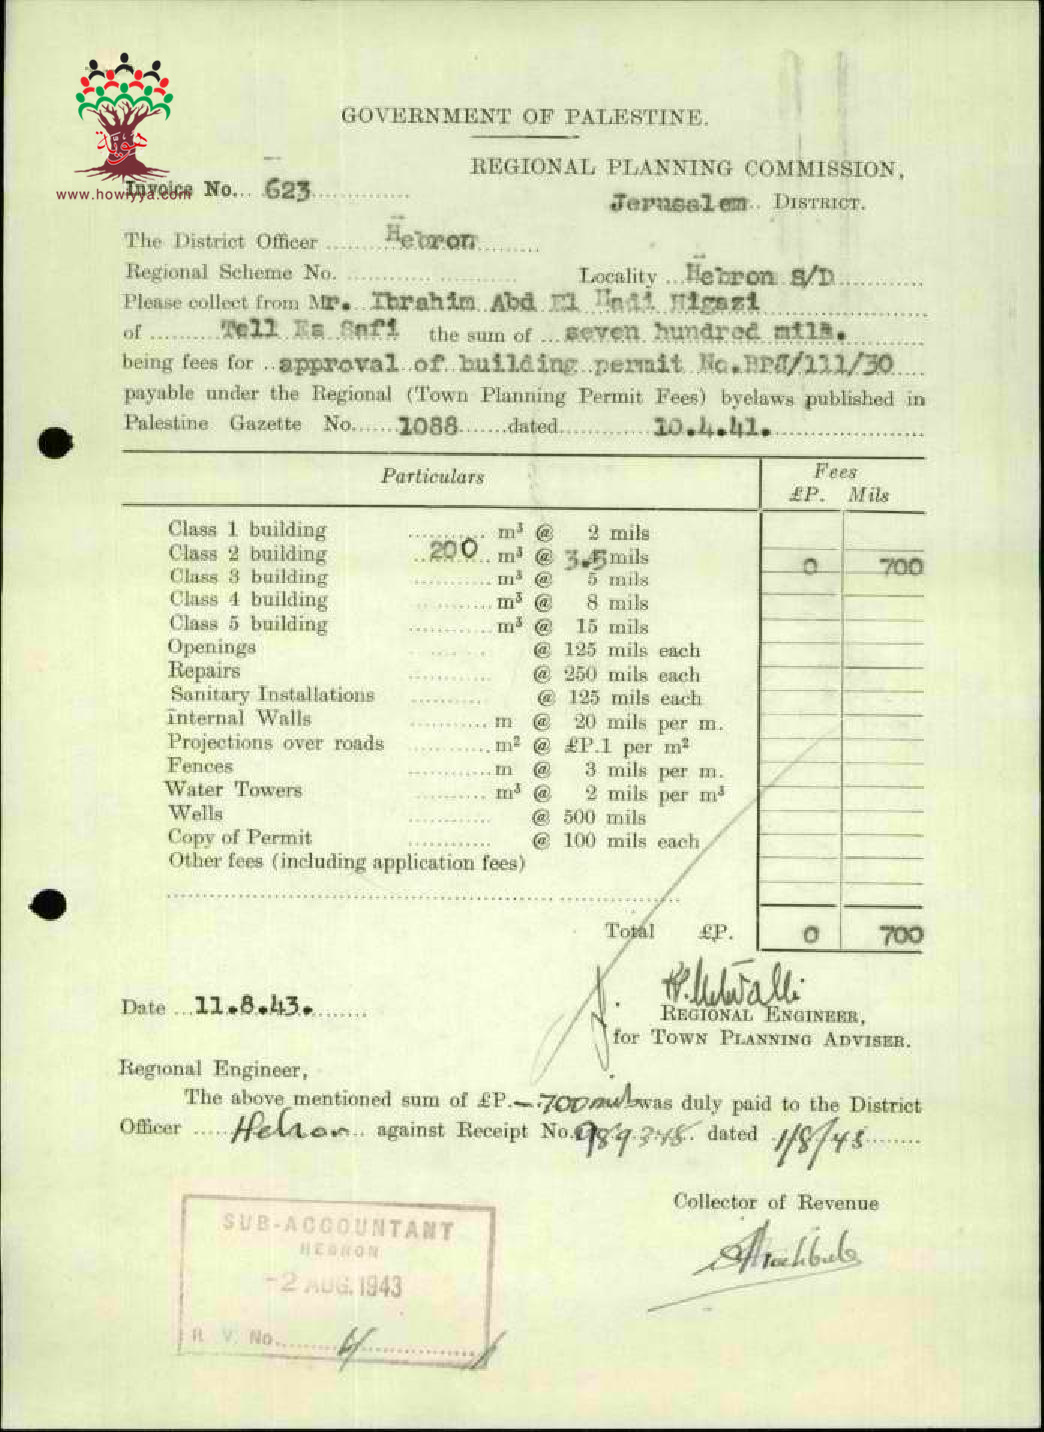 هوية
www.howiyya.com
GOVERNMENT OF PALESTINE.
REGIONAL PLANNING COMMISSION,
Invoice No... 623
Jerusalem.. DISTRICT.
The District Officer ....... Hebron
Regional Scheme No. .................... Locality ... Hebron S/D
Please collect from Mr. Ibrahim Abd El Hadi Higazi
of .......... Tell Es Safi the sum of ... seven hundred mils.
being fees for .. approval of building permit No.
payable under the Regional (Town Planning Permit Fees) byelaws published in
Palestine Gazette No...... 1088 .......dated............. 10.4.41.
Particulars Fees
£P. Mils
Class 1 building ........... m³ @ 2 mils
Class 2 building .. 200 .. m³ @ 3.5 mils 0 700
Class 3 building ........... m³ @ 5 mils
Class 4 building ........... m³ @ 8 mils
Class 5 building ........... m³ @ 15 mils
Openings ........... @ 125 mils each
Repairs ........... @ 250 mils each
Sanitary Installations ........... @ 125 mils each
Internal Walls ........... m @ 20 mils per m.
Projections over roads ........... m² @ £P.1 per m²
Fences ........... m @ 3 mils per m.
Water Towers ........... m³ @ 2 mils per m³
Wells ........... @ 500 mils
Copy of Permit ........... @ 100 mils each
Other fees (including application fees)
Total £P. 0 700
Date ... 11.8.43.
REGIONAL ENGINEER,
for TOWN PLANNING ADVISER.
Regional Engineer,
The above mentioned sum of £P.—.700 mils was duly paid to the District
Officer ..... Hebron .. against Receipt No. 989348 dated 1/8/43
Collector of Revenue
SUB-ACCOUNTANT
HEBRON
-2 AUG. 1943
R. V. No.